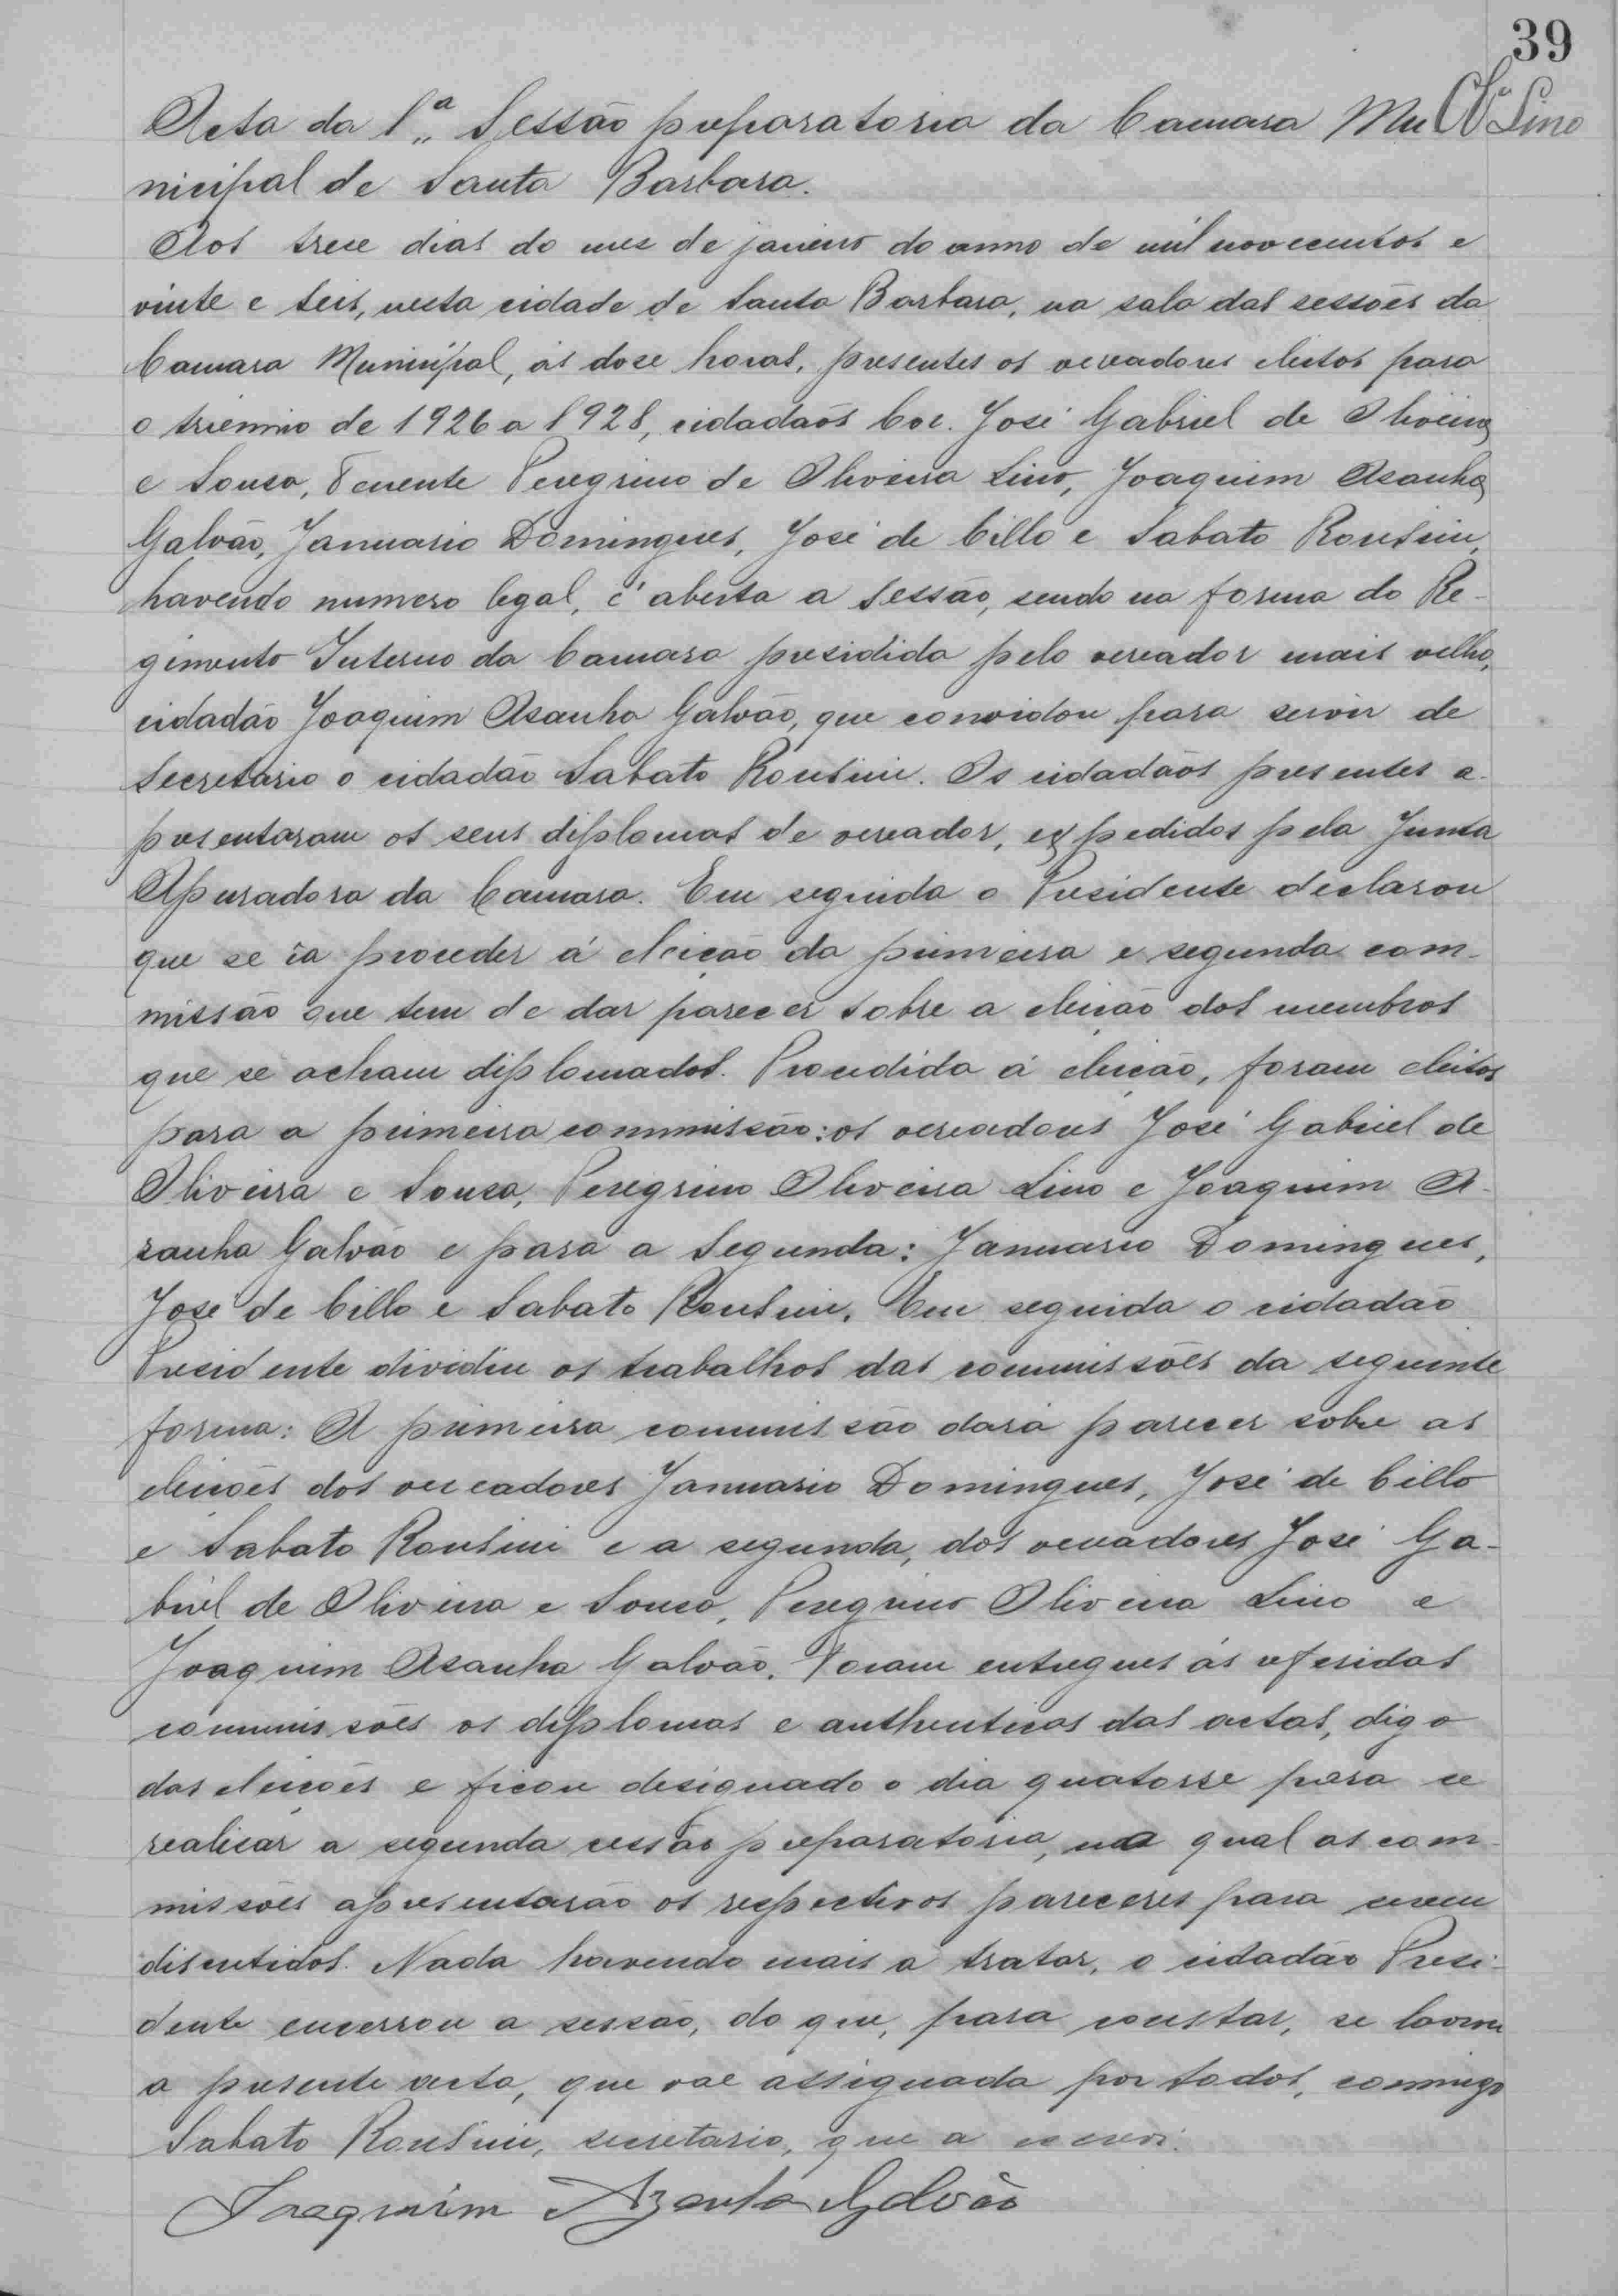 39
Acta da 1ª Sessão preparatoria da Camara Mu Lino
nicipal de Santa Barbara.
Aos trese dias do mez de janeiro do anno de mil novecentos e
vinte e seis, nesta cidade de Santa Barbara, na sala das sessões da
Camara Municipal, ás doze horas, presentes os vereadores eleitos para
o triennio de 1926 a 1928, cidadãos Cor. José Gabriel de Oliveira
e Sousa, Tenente Peregrino de Oliveira Lino, Joaquim Asanha
Galvão, Januario Domingues, José de Cillo e Sabato Ronsini,
havendo numero legal, é aberta a sessão, sendo na forma do Re-
gimento Interno da Camara presidida pelo vereador mais velho,
cidadão Joaquim Asanha Galvão, que convidou para servir de
Secretario o cidadão Sabato Ronsini. Os cidadãos presentes a-
presentaram os seus diplomas de vereador, expedidos pela Junta
Apuradora da Camara. Em seguida o Presidente declarou
que se ia proceder á eleição da primeira e segunda com-
missão que tem de dar parecer sobre a eleição dos membros
que se acham diplomados. Procedida á eleição, foram eleitos
para a primeira commissão: os vereadores José Gabriel de
Oliveira e Sousa, Peregrino Oliveira Lino e Joaquim A-
sanha Galvão e para a segunda: Januario Domingues,
José de Cillo e Sabato Ronsini. Em seguida o cidadão
Presidente dividiu os trabalhos das commissões da seguinte
forma: A primeira commissão dará parecer sobre as
eleições dos vereadores Januario Domingues, José de Cillo
e Sabato Ronsini e a segunda, dos vereadores José Ga-
briel de Oliveira e Sousa, Peregrino Oliveira Lino e
Joaquim Asanha Galvão. Foram entregues ás referidas
commissões os diplomas e authenticas das actas, digo
das eleições e ficou designado o dia quatorse para se
realisar a segunda sessão preparatoria, na qual as com-
missões apresentarão os respectivos pareceres para serem
discutidos. Nada havendo mais a tratar, o cidadão Presi-
dente encerrou a sessão, do que, para constar, se lavrou
a presente acta, que vae assignada por todos, commigo
Sabato Ronsini, secretario, que a escrevi.
Joaquim Azanha Galvão